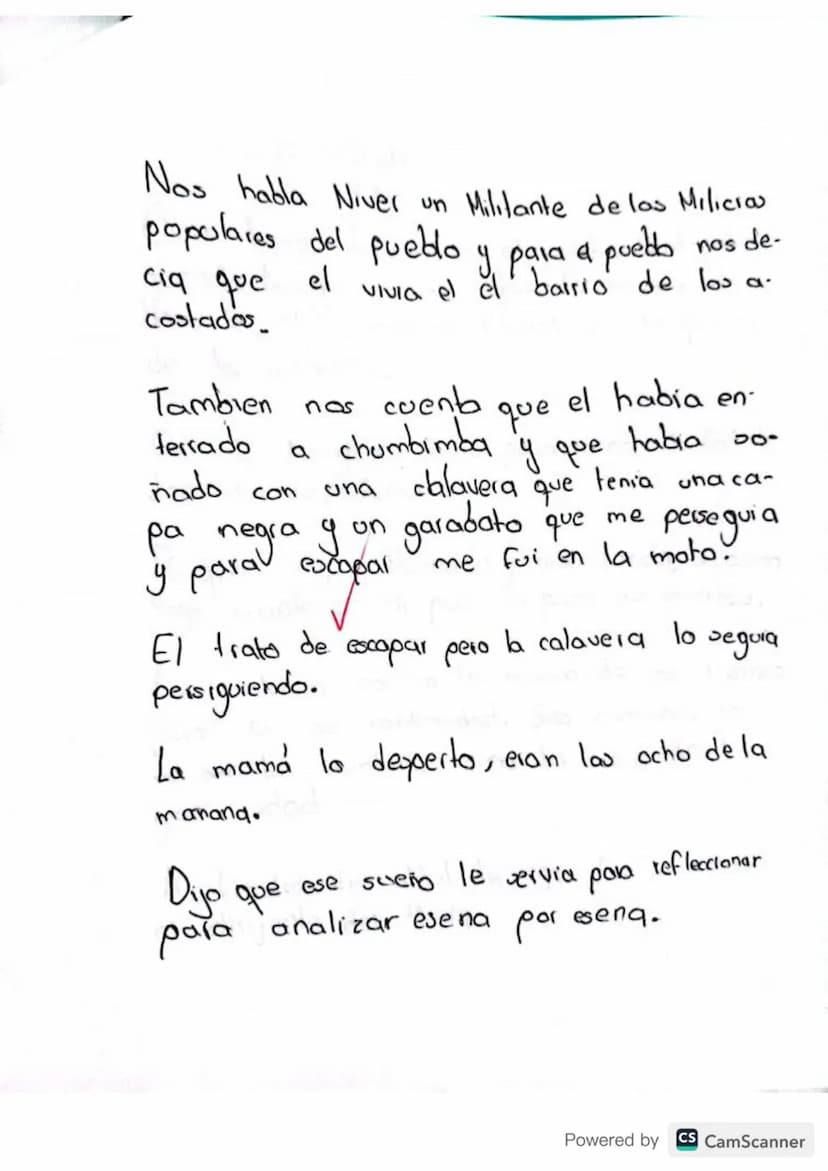 Nos habla Niver un Mililante de las Milicias
populares del pueblo y para el pueblo nos de-
cia que el vivia el el barrio de los a-
costados.
Tambien nos cuento que el habia en-
terrado a chumbimba y que habia so-
ñado con una cblavera que tenia una ca-
pa negra y un garabato que me perseguia
y para escapar me fui en la moto.
El trato de escapar pero la calavera lo seguia
persiguiendo.
La mamá lo desperto, eran las ocho de la
manana.
Dijo que ese sueño le servia para refleccionar
para analizar esena por esena.
Powered by CS CamScanner